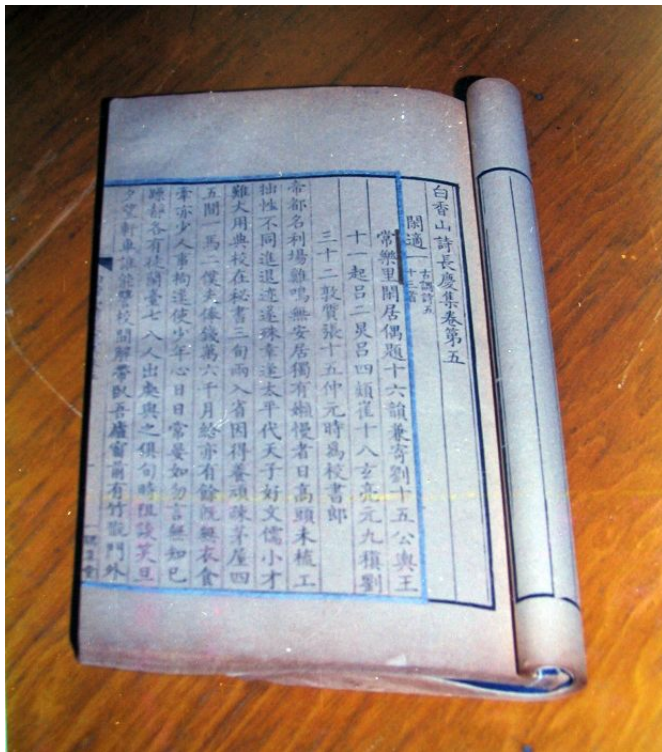 白香山詩長慶集卷第五
閑適一 古調詩五十三首
常樂里閑居偶題十六韻兼寄劉十五公輿王
十一起呂二炅呂四熲崔十八玄亮元九稹劉
三十二敦質張十五仲元時為校書郎
帝都名利場雞鳴無安居獨有嬾慢者日高頭未梳工
拙性不同進退迹遂殊幸逢太平代天子好文儒小才
難大用典校在秘書三旬兩入省因得養頑疎茅屋四
五間一馬二僕夫俸錢萬六千月給亦有餘既無衣食
牽亦少人事拘遂使少年心日日常晏如勿言無知已
躁靜各有徒蘭臺七八人出處與之俱旬時阻談笑旦
夕望軒車誰能讎校間解帶臥吾廬窗前有竹翫門外